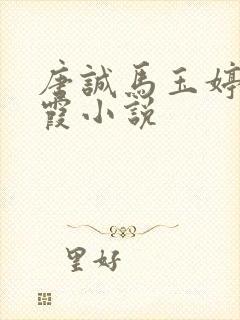 唐誠馬玉婷
霞小說
里好